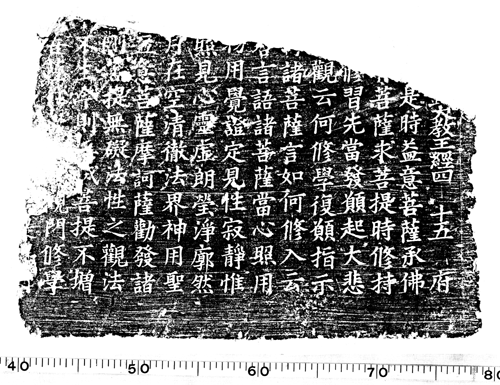 教王經四 十五 府
是時益意菩薩承佛
菩薩求菩提時修持
修習先當發願起大悲
觀云何修學復願指示
諸菩薩言如何修入云
言語諸菩薩當心照用
用覺證定見性寂靜惟
照見心靈虛朗瑩淨廓然
月在空清徹法界神用聖
意菩薩摩訶薩勸發諸
剛菩提無礙法性之觀法
不生則菩提不增
觀門修學
40 50 60 70 80